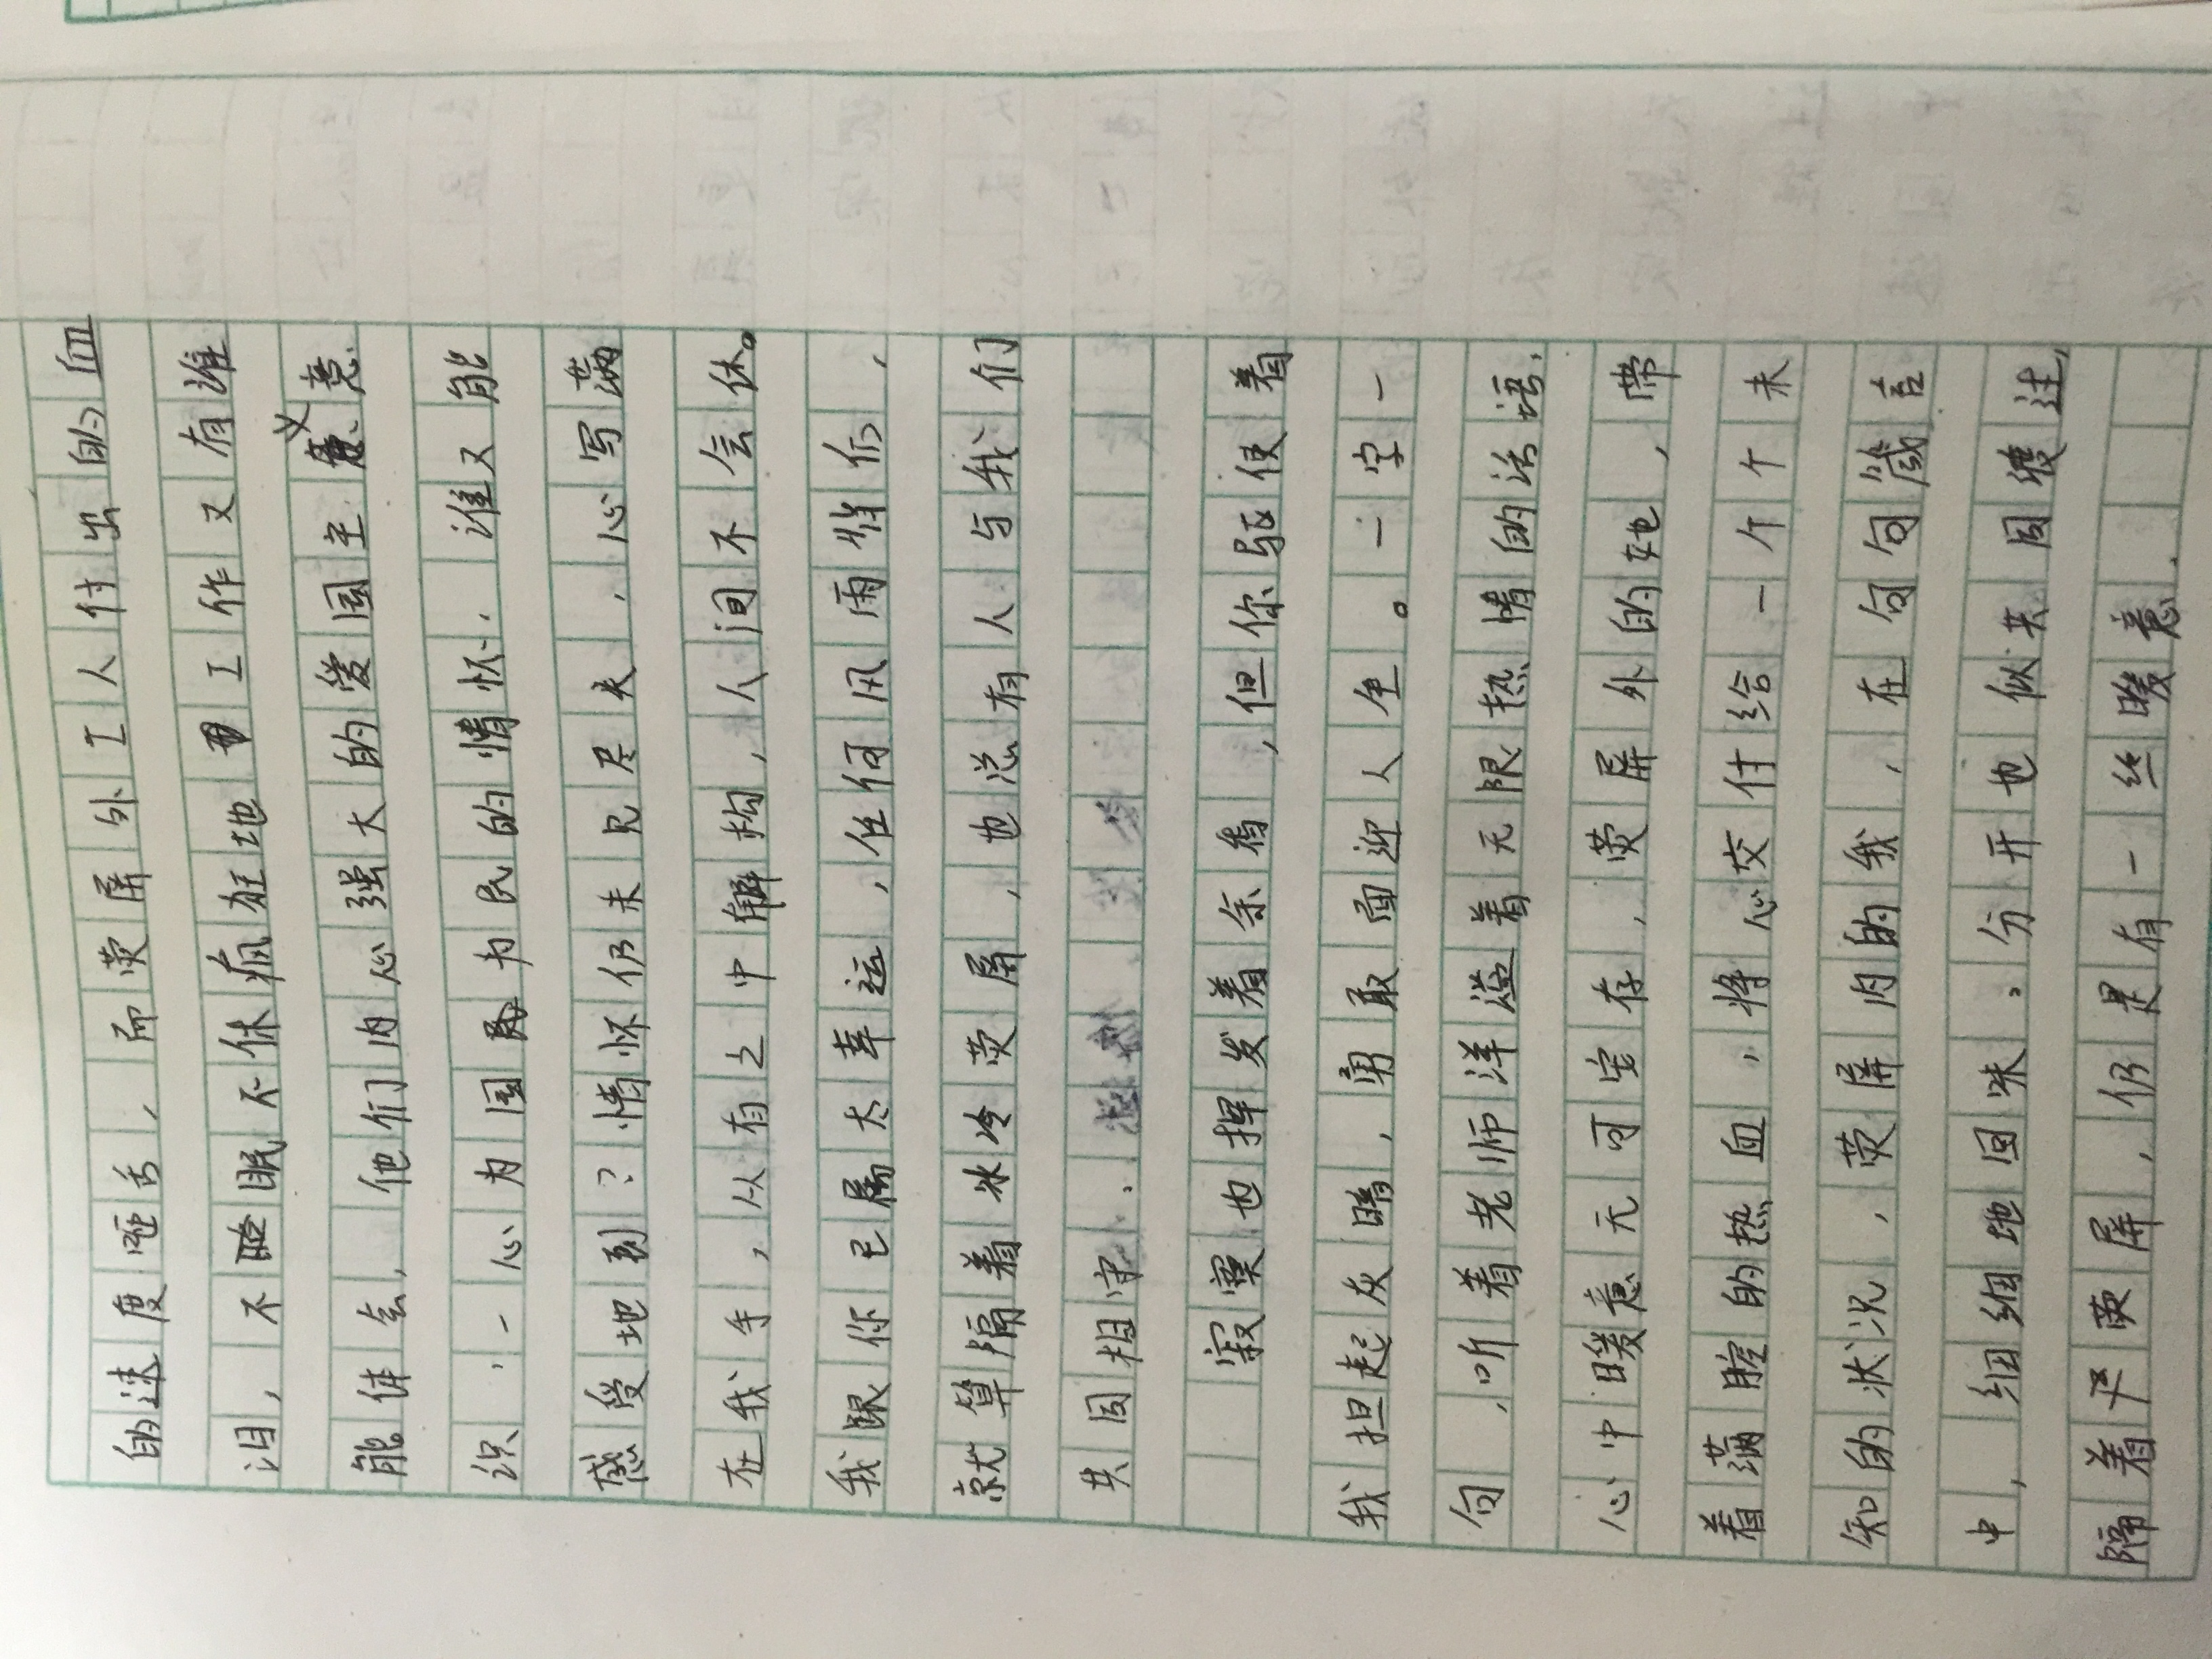 的速度咂舌，而荧屏外工人付出的血
泪，不眠不休疯狂地工作又有谁
能体会，他们内心强大的爱国主义意
识，一心为国为民的情怀，谁又能
感受地到？情怀仍未见尽失，心写满
在我手，从有之中解构，人间不会休。
我跟你已属太幸运，任何风雨悄行，
就算隔着冰冷荧屏，也总有人与我们
共同相守．
寂寞也挥发着余香，但你驱使着
我担起灰暗，勇敢面迎人生。一字一
句，听着老师洋溢着无限热情的话语，
心中暖意无可安存，荧屏外的她，带
着满腔的热血，将心交付给一个个未
知的状况，荧屏内的我，在句句箴言
中，细细地回味。分开也似共同经过，
隔着荧屏，仍是有一丝暖意．